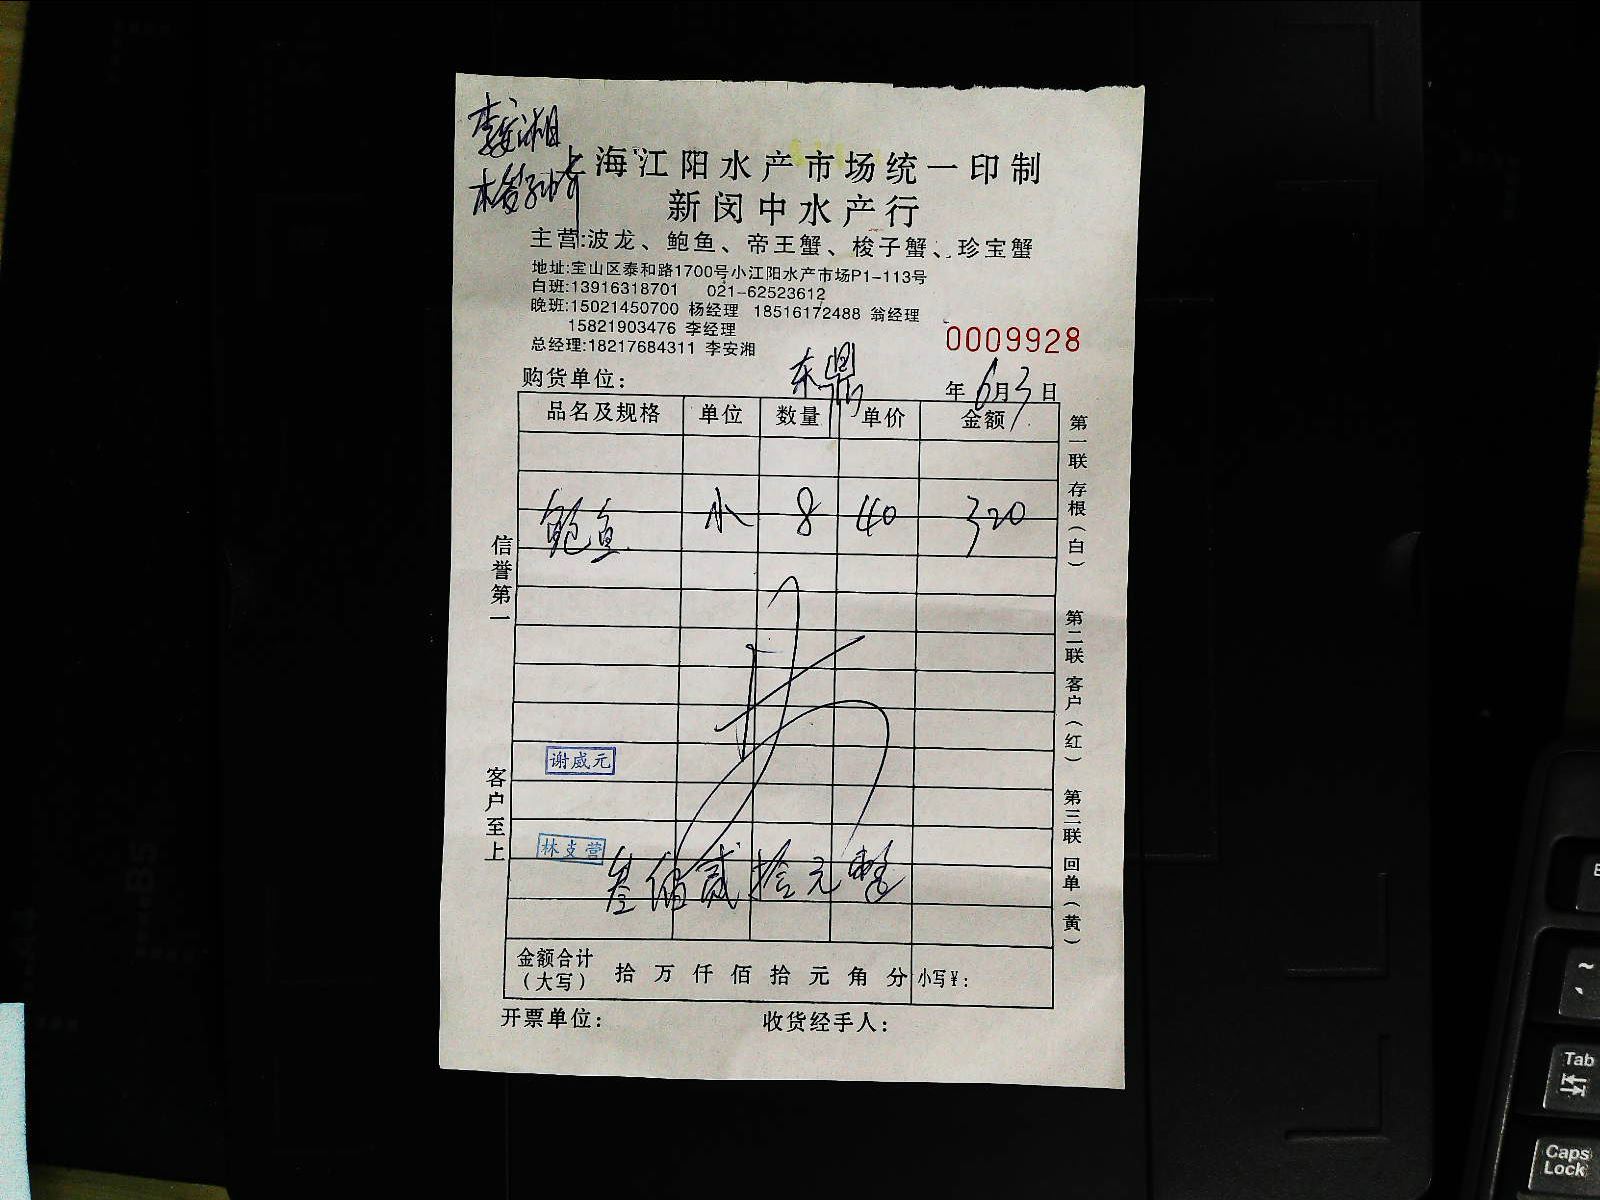 李安湘
上海江阳水产市场统一印制
新闵中水产行
主营:波龙、鲍鱼、帝王蟹、梭子蟹、珍宝蟹
地址:宝山区泰和路1700号小江阳水产市场P1-113号
白班:13916318701 021-62523612
晚班:15021450700 杨经理 18516172488 翁经理
15821903476 李经理
总经理:18217684311 李安湘
0009928
购货单位: 东鼎 年 6月3日
品名及规格 单位 数量 单价 金额
鲍鱼 小 8 40 320
谢威元
林支营
叁佰贰拾元整
金额合计(大写) 拾 万 仟 佰 拾 元 角 分 小写¥:
开票单位: 收货经手人:
信誉第一
客户至上
第一联 存根(白)
第二联 客户(红)
第三联 回单(黄)
Tab
Caps Lock